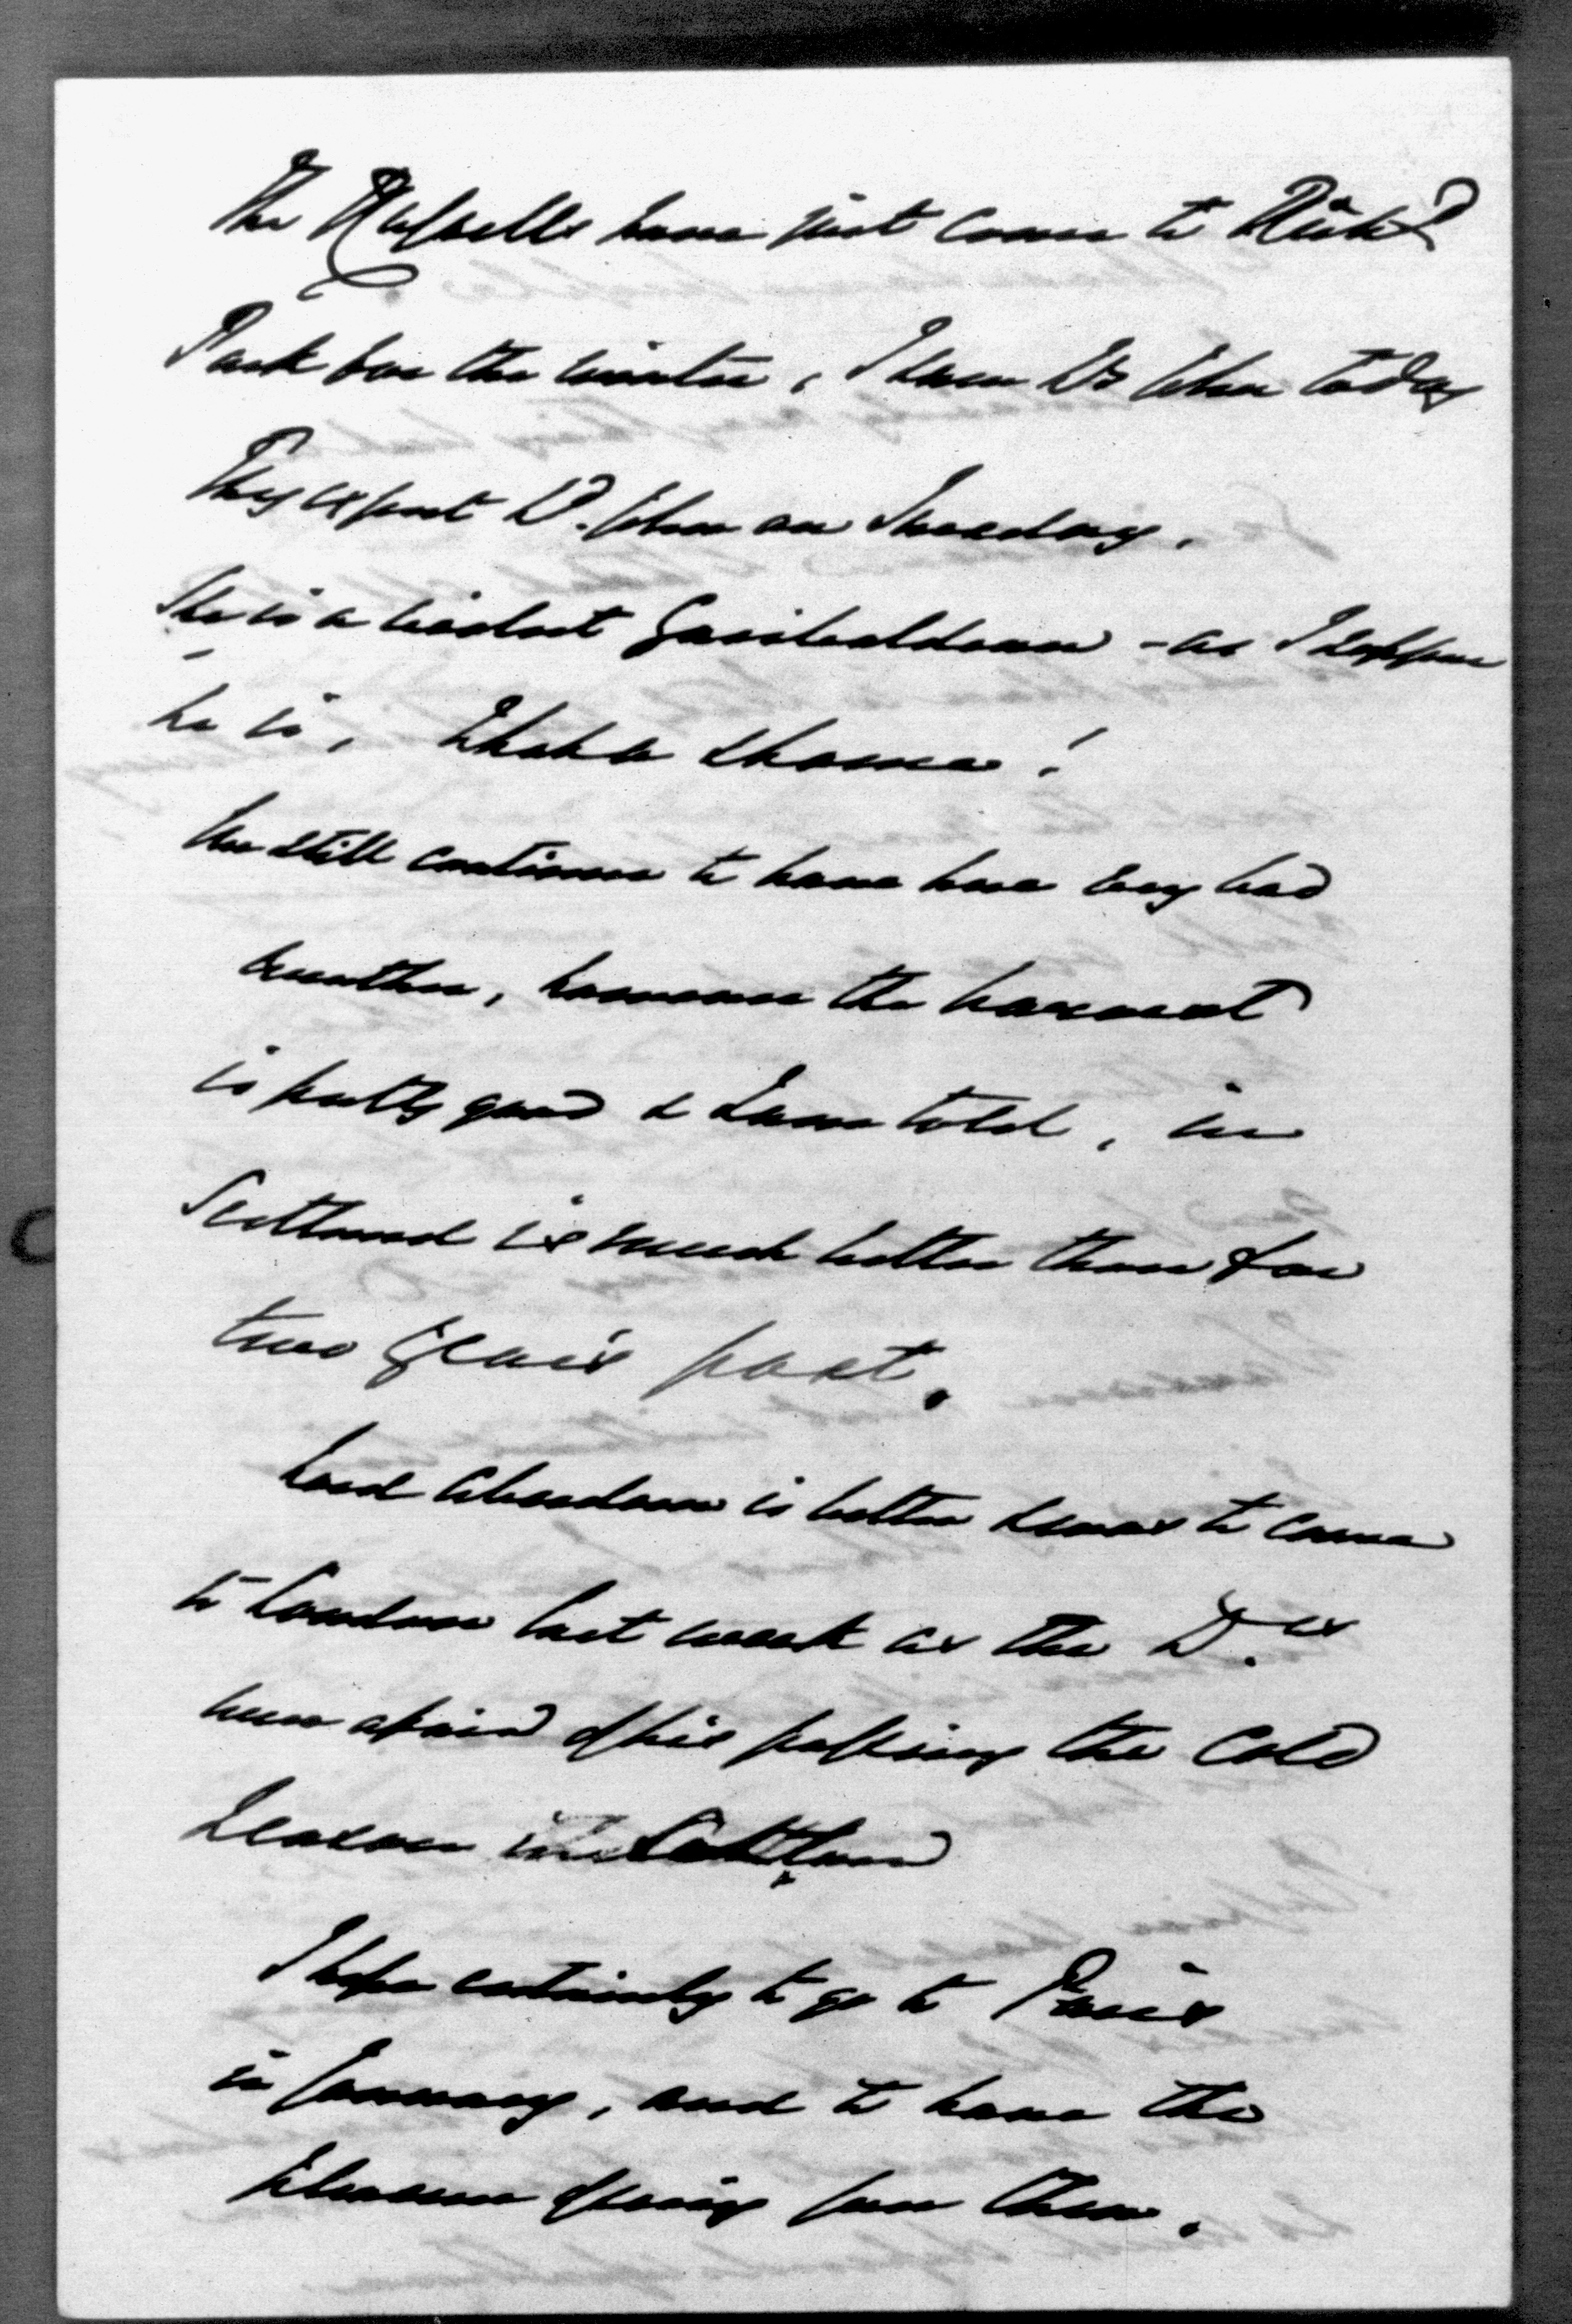 The Russells have just come to Rich.d
Park for the winter, I saw Ly John today
They expect Ld. John on Thursday.
She is a violent Garibaldean - as I suppose
he is, What a shame!
We still continue to have here very bad
weather, however the harvest
is pretty good & I am told, in
Scotland is much better than for
two years past.
Lord Aberdeen is better & was to come
to London last week as the D.rs
were afraid of his passing the cold
season in Scotland
I hope certainly to go to Paris
in January, and to have the
pleasure of seeing you then.